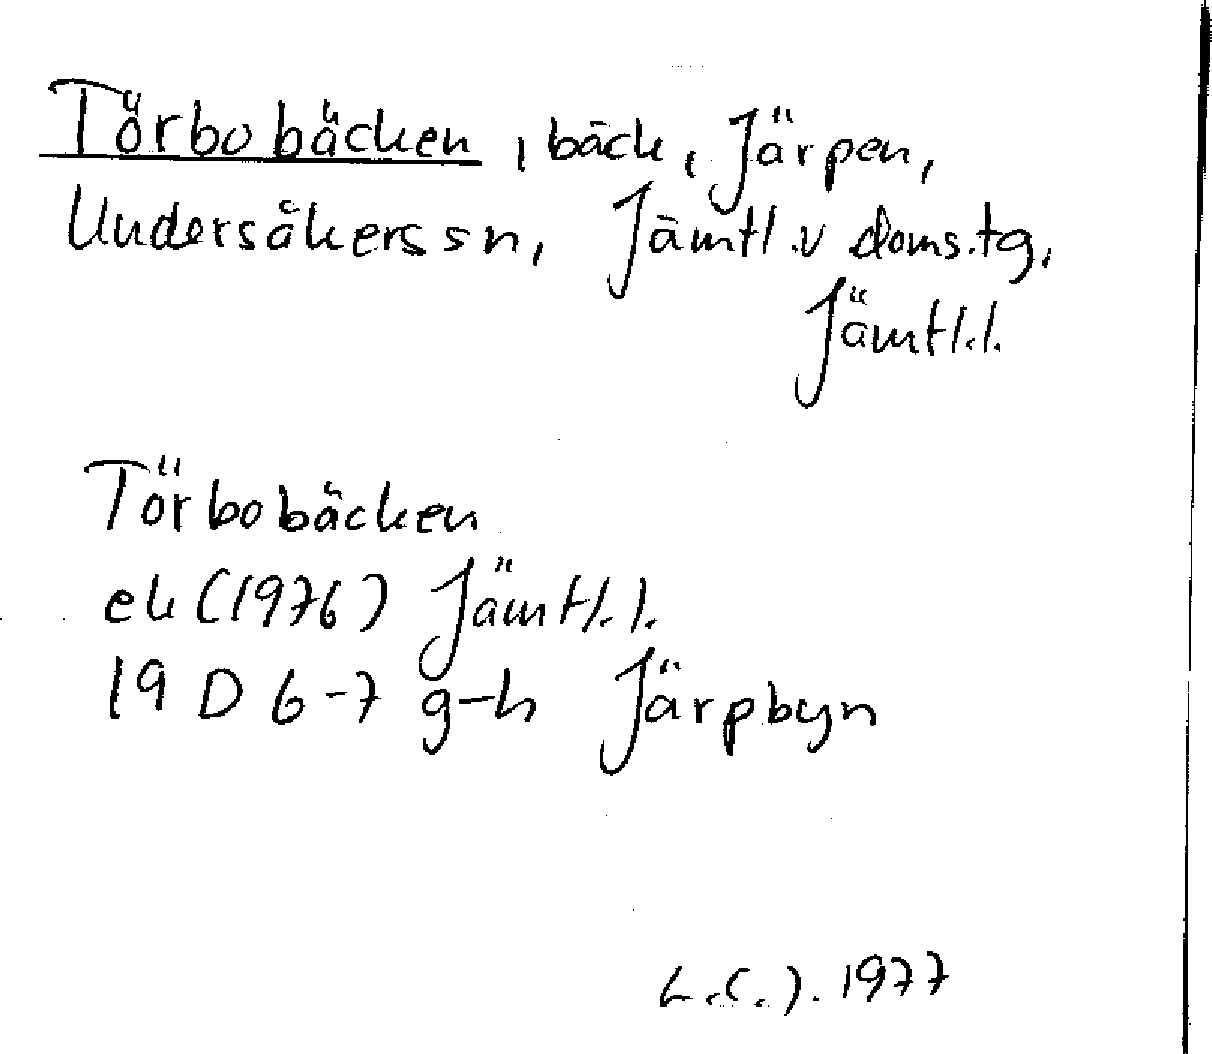 Törbobäcken, bäck, Järpen,
Undersåkers sn, Jämtl.v doms.tg,
Jämtl.l.
Törbobäcken
ek (1976) Jämtl.l.
19 D 6-7 g-h Järpbyn
1977